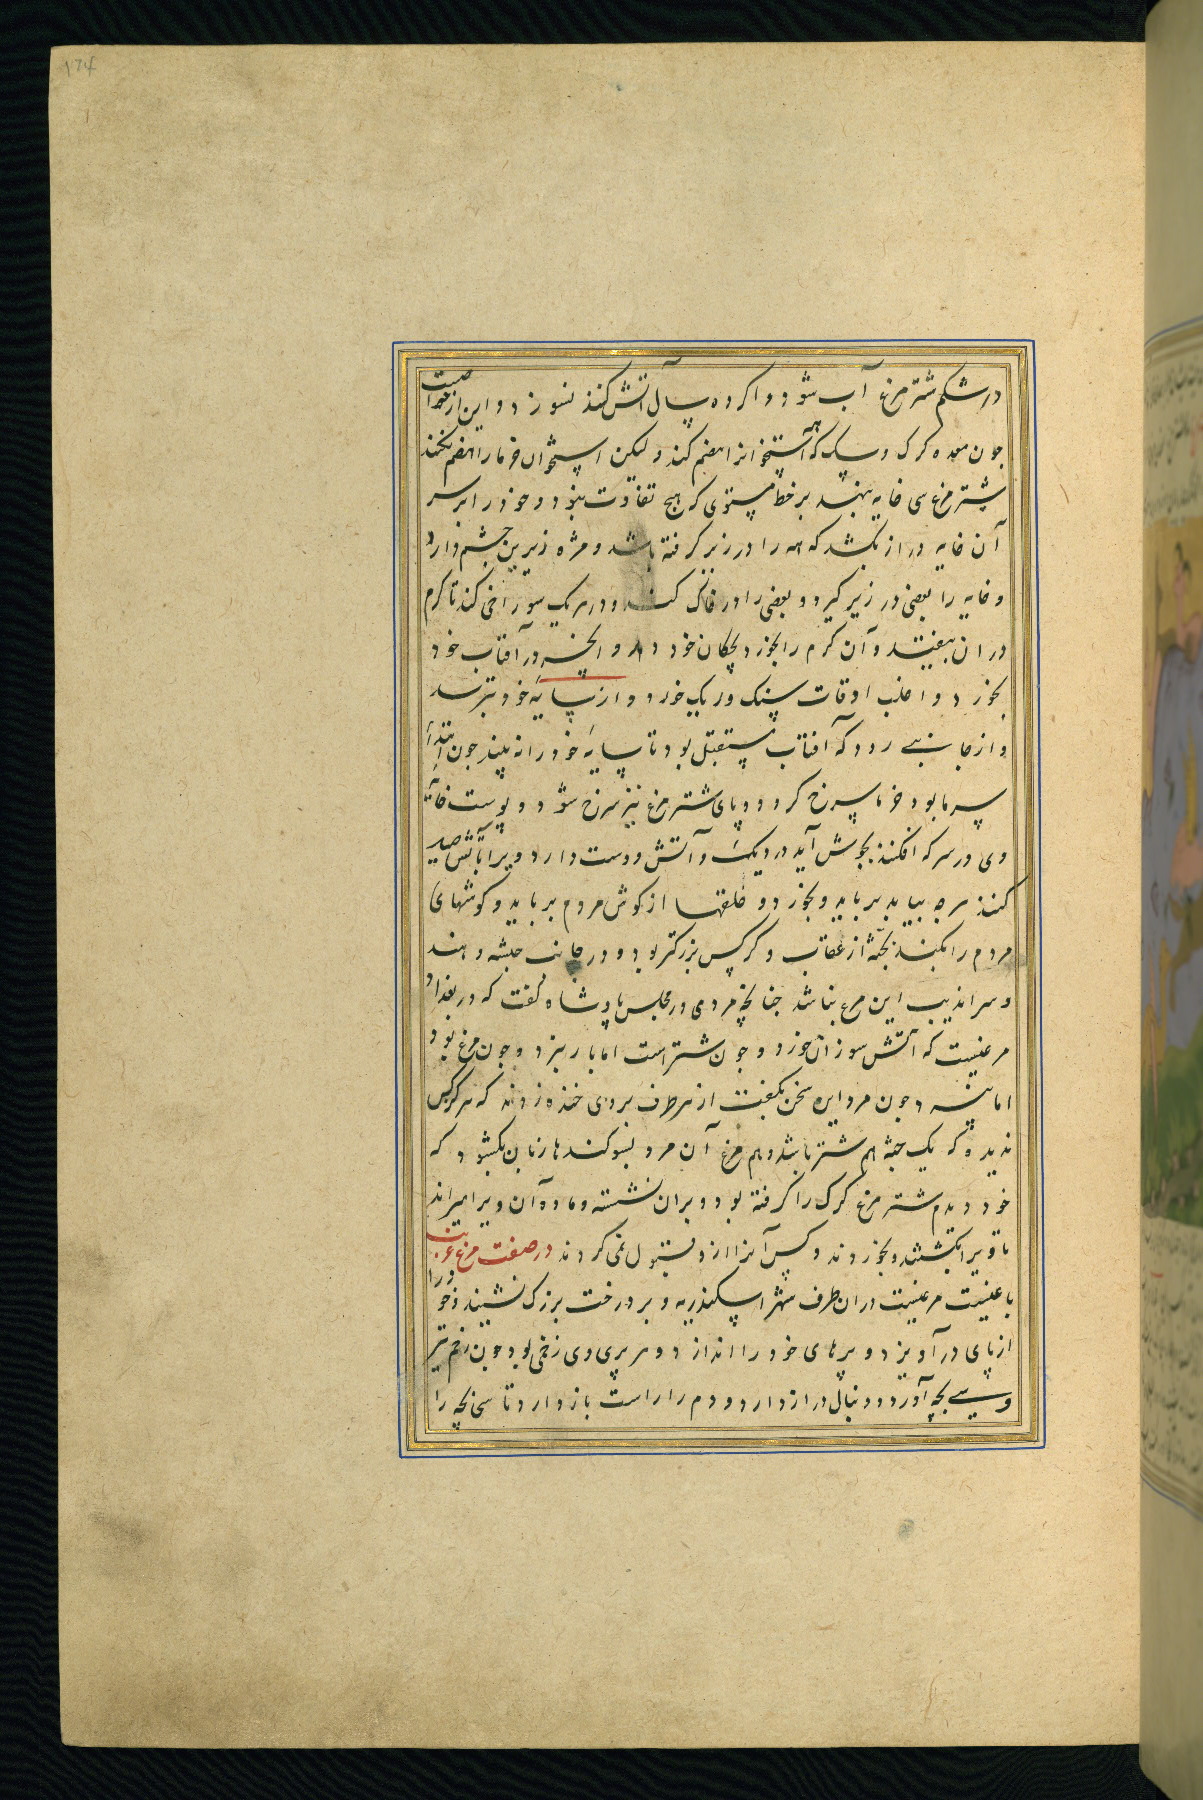 ۱۲۴
در شکم شتر مرغ آب شود و اگر ده سال آتش کند نسوزد و این از خواصیت
جون معده گرگ و سگ که استخوانرا هضم کند و لیکن استخوان خرما را هضم نکند
شتر مرغ سی خایه بنهد بر خط مستوی که هیچ تفاوت نبود و خود را بر سر
آن خایه دراز بکشد که همه را در زیر گرفته باشد و مژه زیرین جشم دارد
و خایه را بعضی در زیر گیرد و بعضی را در خاک کند و در هر یک سوراخی کند تا کرم
در ان بیفتد و آن کرم را بخورد بچکان خود دهد و انجه در آفتاب خود
بخورد و اغلب اوقات سنک و ریک خورد و از سایه خود بترسد
و از جانبی رود که آفتاب مستقبل بود تا سایه خود را نه بیند جون ابتدا
سرما بود خرما سرخ گردد و پای شتر مرغ نیز سرخ شود و پوست خایه
وی در سرکه افکنند بجوش آید در دیک و آتش دوست دارد و یرا بآتش صید
کنند هرجه بیابد برباید و بخورد و حلقها از گوش مردم برباید و گوشهای
مردم را بکند بجثه از عقاب و کرکس بزرکتر بود و در جانب حبشه و هند
و سراندیب این مرغ نباشد جنانجه مردی در مجلس پادشاه گفت که در بغداد
مرغیست که آتش سوزان خورد و جون شتر است اما بار نبرد و جون مرغ بود
اما نپرد جون مرد این سخن بگفت از هر طرف بر وی خنده زدند که هرگز کس
ندیده که یک جثه هم شتر باشد و هم مرغ آن مرد بسوکندها زبان بکشود که
خود دیدم شتر مرغ گرک را گرفته بود و بران نشسته و ماده آن ویرا میراند
تا ویرا بکشتند و بخوردند و کس آنرا ازو قبول نمی کردند در صفت مرغ
باغیست مرغیست دران طرف شهر اسکندریه و بر درخت بزرک نشیند و خود را
از پای در آویزد و پرهای خود را اندازد و هر پری وی زخمی بود جون زخم تیر
وسی بچه آورد و دنبال دراز دارد و دم را راست باز دارد تا سی بچه را